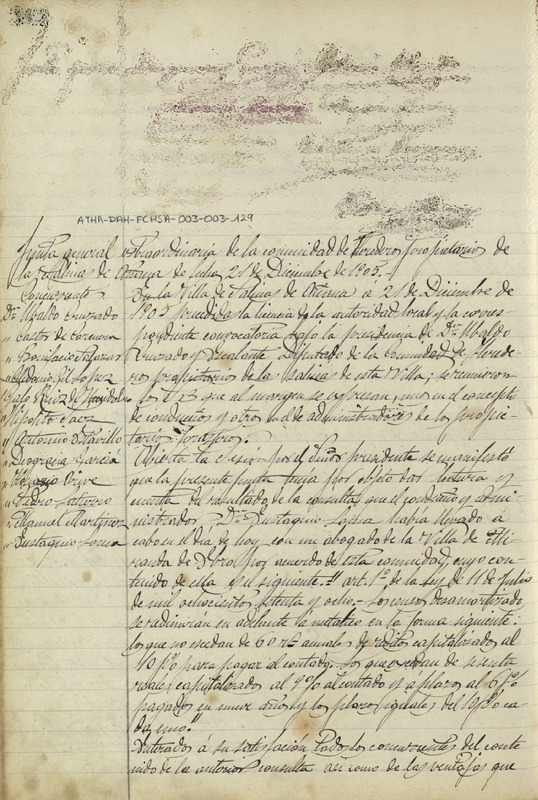 ATHA-DAH-FCHSA-003-003-129
Junta general extraordinaria de la comunidad de Herederos propietarios de
las Salinas de Añana de fecha 21 de Diciembre de 1905.-
Concurrentes
Dn. Ubaldo Cruzado
" Castor de
" Bonifacio Salazar
" Gil Lopez
" Ruiz de
" Hipolito Saez
" Antonio
" Deogracias Garcia
" Uribe
" Pedro
" Manuel Martinez
" Eustaquio Loma
En la Villa de Salinas de Añana á 21 de Diciembre de
1905 precedida la licencia de la autoridad local y la corres-
pondiente convocatoria bajo la presidencia de Dn. Ubaldo
Cruzado y Diputado de la Comunidad de Herede-
ros propietarios de las Salinas de esta Villa; se reunieron
los Sres que al margen se espresan, unos en el concepto
de condueños y otros en el de administradores de los propie-
tarios forasteros.
Abierta la sesion por el Señor presidente se manifestó
que la presente junta tenia por objeto dar lectura y
cuenta del resultado de la consulta que el condueño y admi-
nistrador Dn. Eustaquio Loma habia llevado a
cabo en el dia de hoy con un abogado de la Villa de Mi-
randa de Ebro por acuerdo de esta comunidad, cuyo con-
tenido de ella es el siguiente. "art. 1º de la Ley de 11 de Julio
de mil ochocientos setenta y ocho.- Los censos desamortizados
se redimiran en adelante la metalico en la forma siguiente:
los que no escedan de 60 rs. anuales de redito capitalizados al
10 p% para pagar al contado. Los que escedan de sesenta
reales capitalizados al 9% al contado y a plazos al 6 p%
pagados en nueve años y los plazos iguales del 10 p% ca-
da uno."
Enterados á su satisfacción todos los concurrentes del conte-
nido de la anterior consulta asi como de las ventajas que